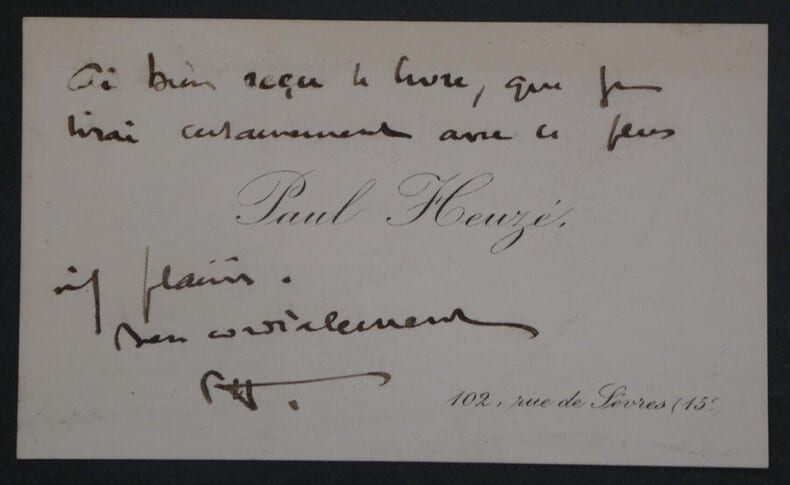 Ai bien reçu le livre, que je
lirai certainement avec le plus
Paul Heuzé.
vif plaisir.
Bien cordialement
PH.
102, rue de Sèvres (15ᵉ